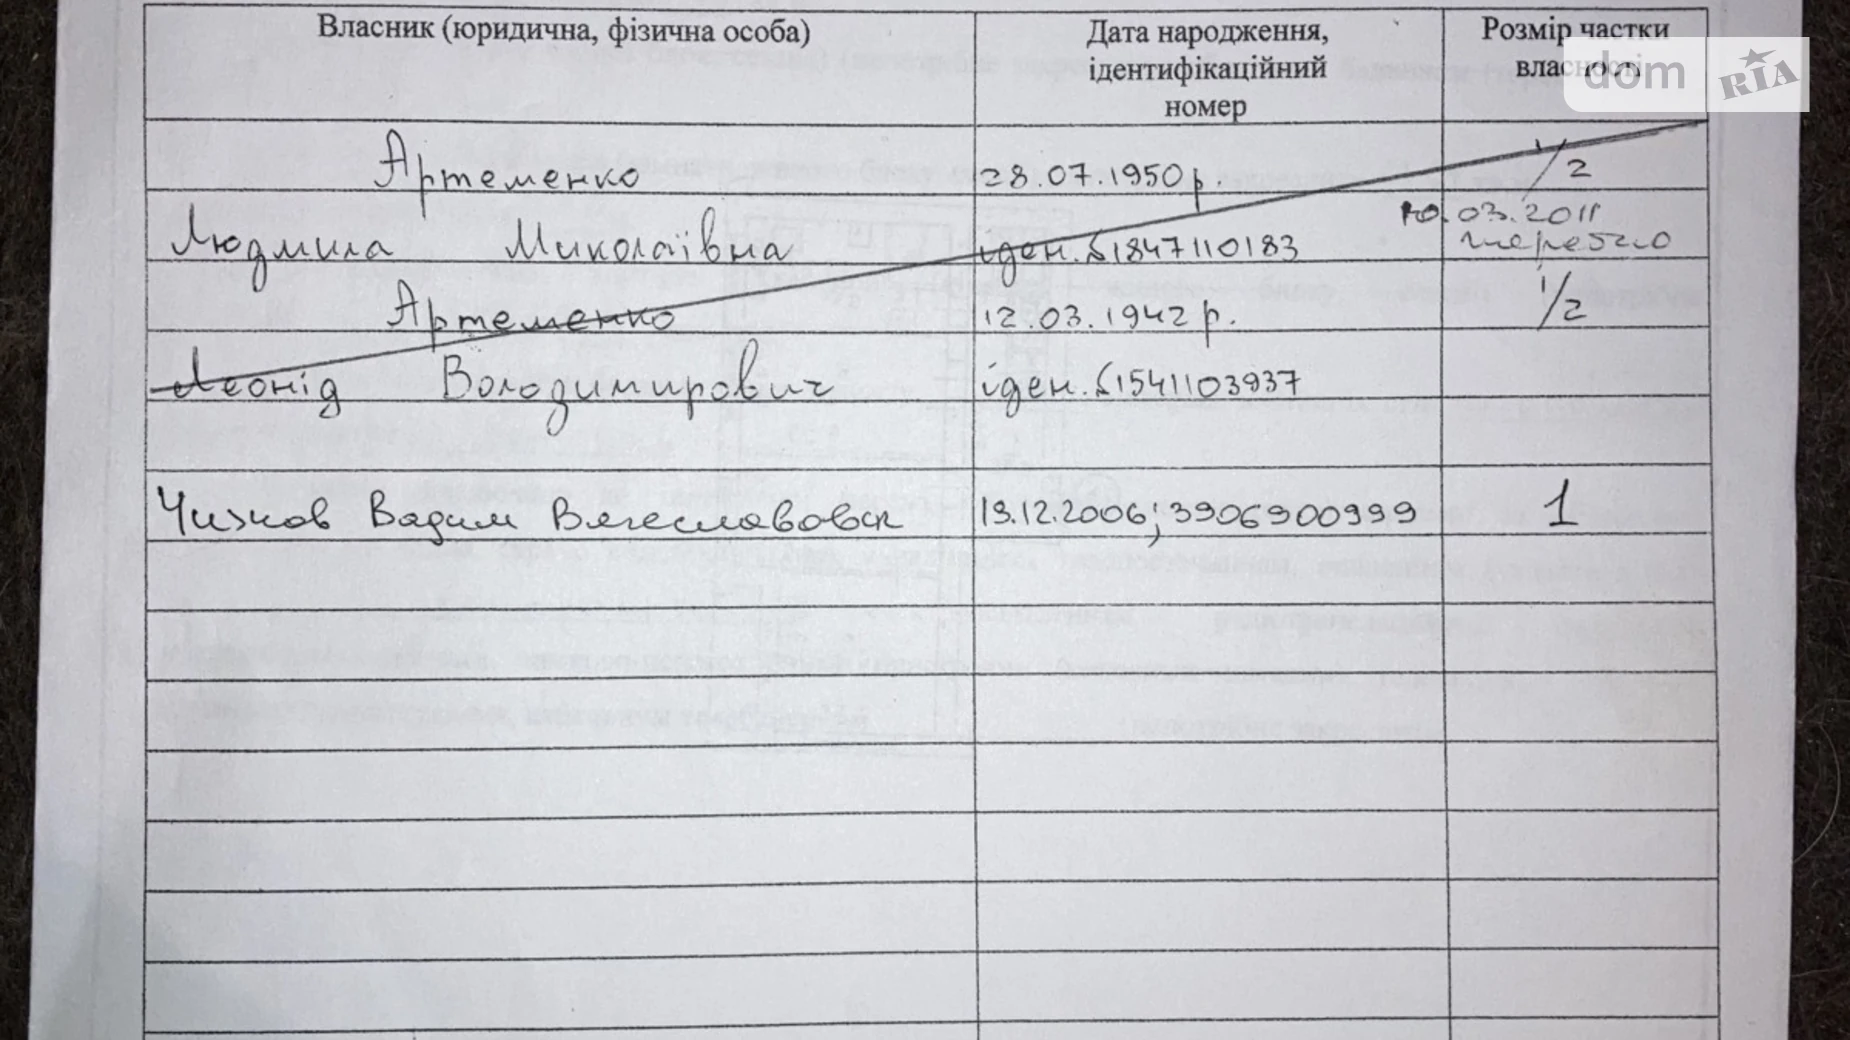 Власник (юридична, фізична особа)
Дата народження,
ідентифікаційний
номер
Розмір частки
власності
dom RIA
Артеменко 28.07.1950р. 1/2
10.03.2011
Людмила Миколаївна іден. 1847110183
Артеменко 12.03.1942р. 1/2
Леонід Володимирович іден. 1541103937
Чижов Вадим 19.12.2006; 3906900999 1